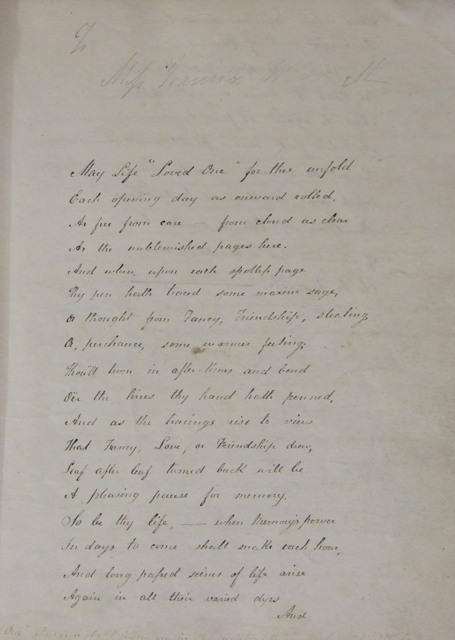 To
Miss
May Life "Loved One" for thee unfold
Each opening day as onward rolled,
As free from care — from cloud as clear
As the unblemished pages here.
And when upon each spotless page
Thy pen hath traced some maxim sage,
Or thought from Fancy, Friendship, stealing,
Or, perchance, some warmer feeling;
Thou'lt turn in after-times and bend
O'er the lines thy hand hath penned,
And as the tracings rise to view
That Fancy, Love, or Friendship drew,
Leaf after leaf turned back will be
A pleasing pause for memory.
So be thy life, — when Memory's power
In days to come shall wake each hour,
And long passed scenes of life arise
Again in all their varied dyes
And